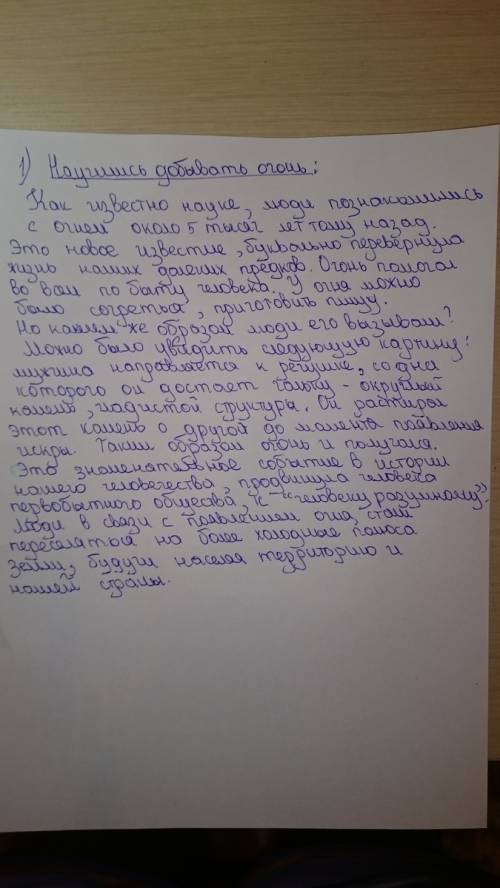 1) Научились добывать огонь:
Как известно науке, люди познакомились
с огнём около 5 тысяч лет тому назад.
Это новое известие, буквально перевернула
жизнь наших далёких предков. Огонь помогал
во всём по быту человека. У огня можно
было согреться, приготовить пищу.
Но каким же образом люди его вызывали?
Можно было увидить следующую картину:
мужчина направляется к речушке, со дна
которого он достает гальку - округлый
камень, гладистой структуры. Он растирал
этот камень о другой до момента появления
искры. Таким образом огонь и получался.
Это знаменательное событие в истории
нашего человечества, продвинула человека
первобытного общества, к "человеку разумному".
Люди в связи с появлением огня, стали
переселяться на более холодные полюса
земли, будучи населяя территорию и
нашей страны.